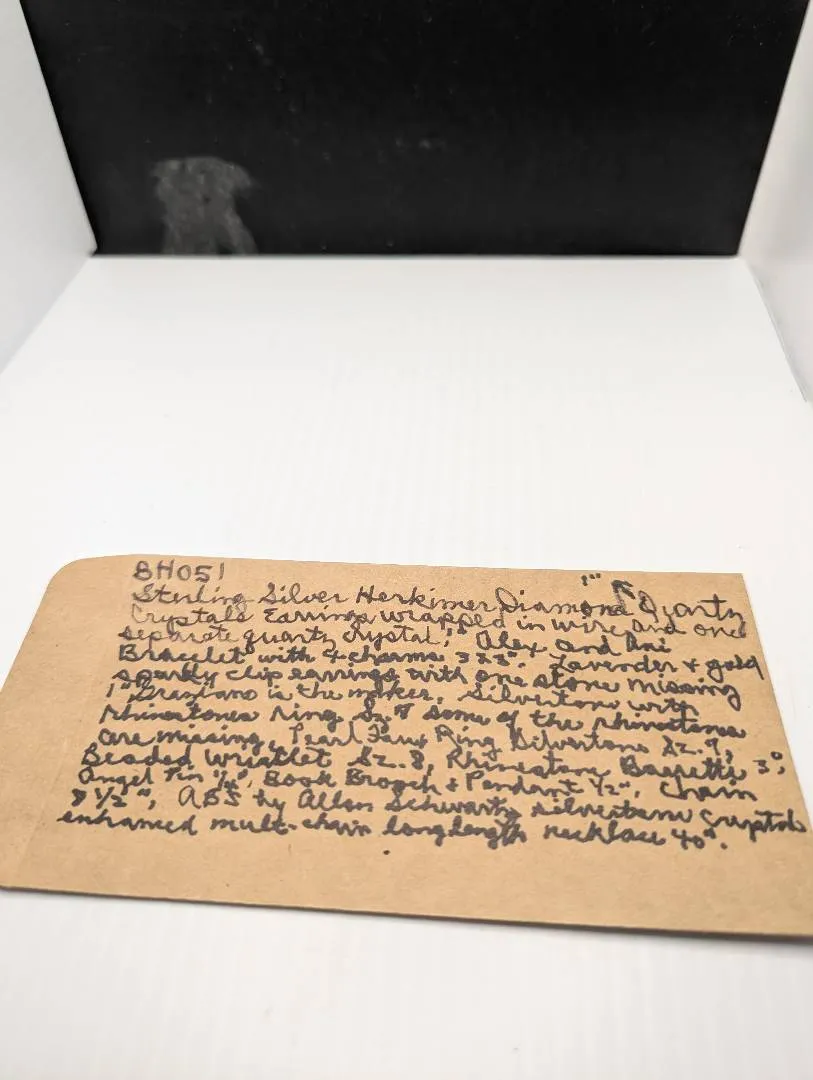 BH051
1"
Sterling Silver Herkimer Diamond Quartz
Crystals Earrings wrapped in wire and one
separate quartz crystal, Alex and Ani
Bracelet with 4 charms 3x3". Lavender & gold
sparkly clip earrings with one stone missing
1" Graziano is the maker. Silvertone with
rhinestones ring Sz. 8 some of the rhinestones
are missing, Pearl Faux Ring Silvertone Sz. 9,
Beaded Wristlet Sz. 8, Rhinestone Barrette 3",
Angel Pin 1/2", Book Brooch & Pendant 1/2", Chain
8 1/2", ABS by Allen Schwartz silvertone crystal
enhanced mult-chain long length necklace 40".